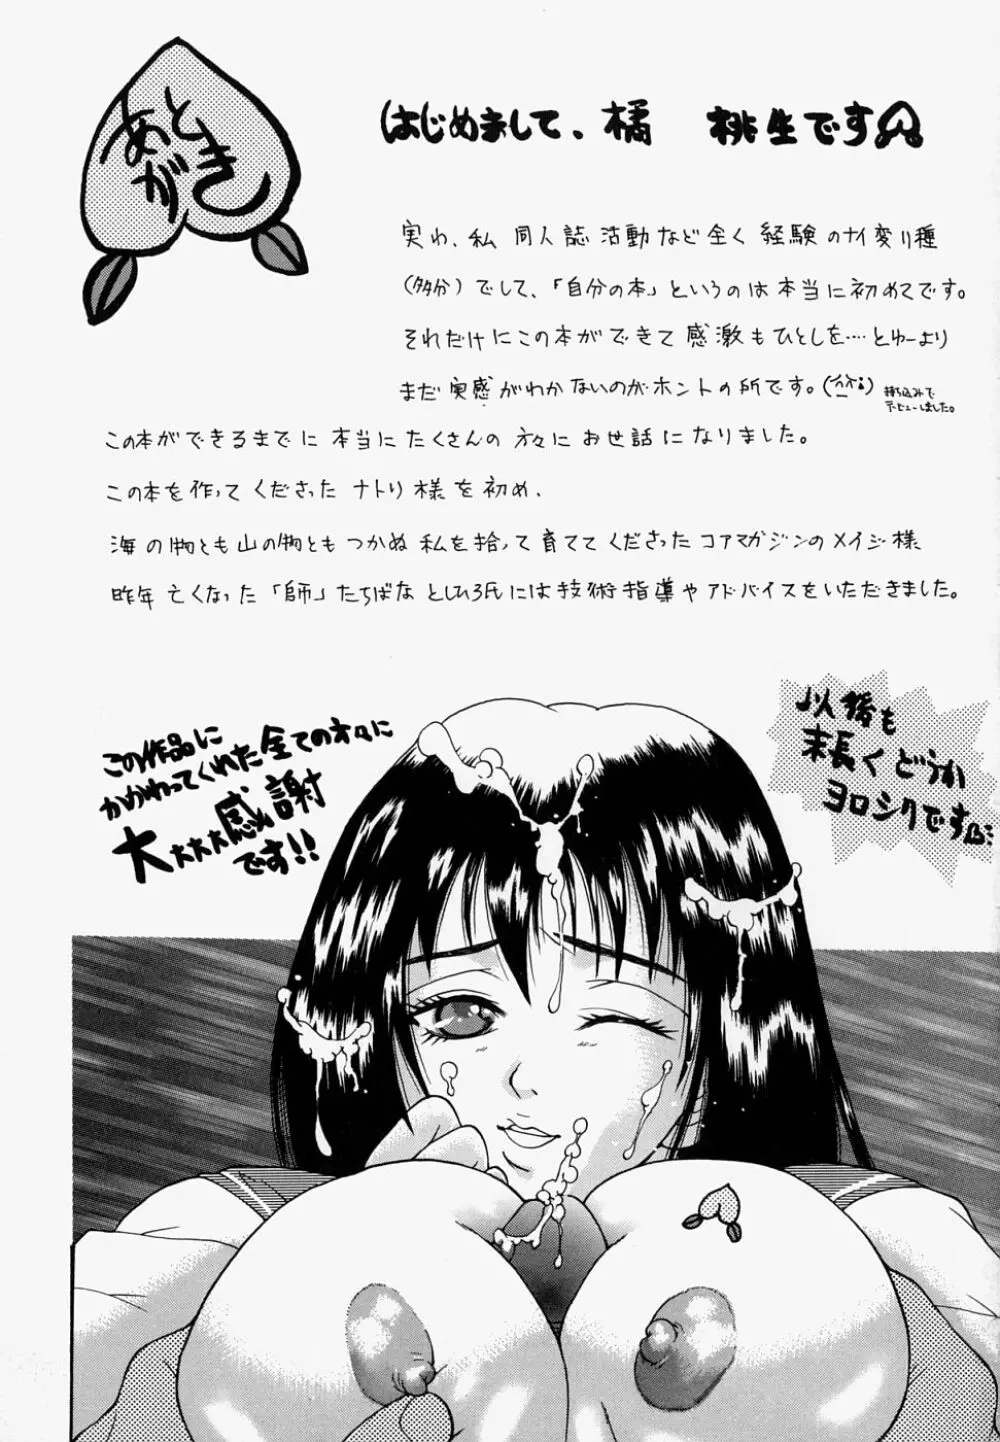 あとがき
はじめまして、橘 桃生です
実わ、私 同人誌活動など全く経験のナイ変り種
(多分)でして、「自分の本」というのは本当に初めてです。
それだけにこの本ができて感激もひとしを‥‥とゆーより
まだ実感がわかないのがホントの所です。
持ち込みで
デビューしました。
この本ができるまでに本当にたくさんの方々にお世話になりました。
この本を作ってくださったナトリ様を初め、
海の物とも山の物ともつかぬ私を拾って育ててくださったコアマガジンのメイジ様、
昨年亡くなった「師」たちばなとしひろ氏には技術指導やアドバイスをいただきました。
この作品に
かかわってくれた全ての方々に
大大大大感謝
です!!
以後も
末長くどうか
ヨロシクです